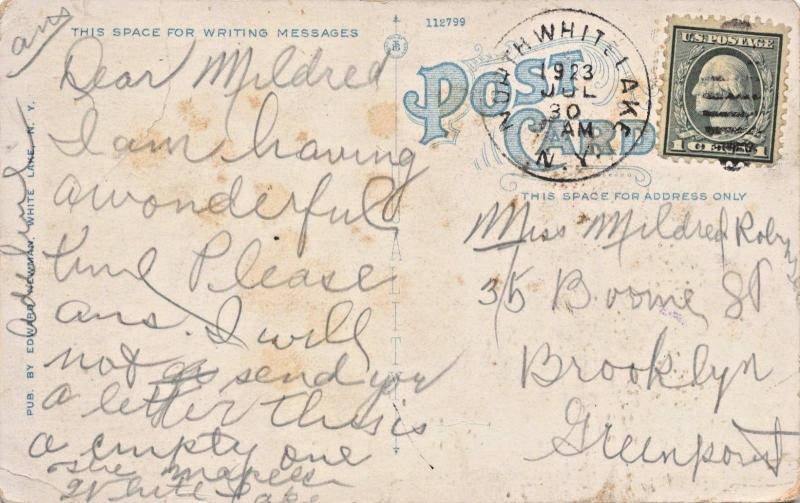 THIS SPACE FOR WRITING MESSAGES
ans
Dear Mildred
I am having
a wonderful
time Please
ans. I will
not send you
a letter this is
a empty one
White Lake
Adeline
PUB. BY EDWARD NEWMAN, WHITE LAKE, N. Y.
112799
POST CARD
NORTH WHITE LAKE
1923
JUL
30
AM
N.Y.
U.S. POSTAGE
1 CENT 1
THIS SPACE FOR ADDRESS ONLY
Miss Mildred
35 Boome St
Brooklyn
Greenpoint